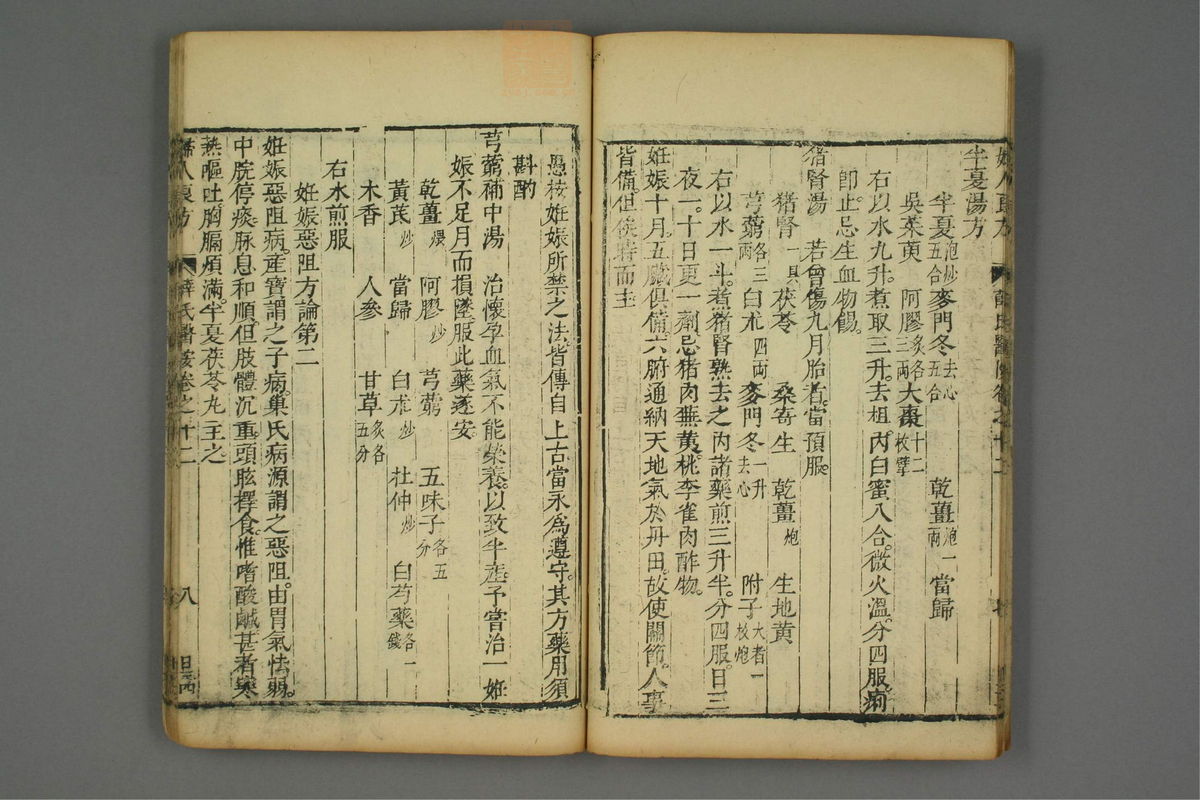 半夏湯方
半夏泡炒五合 麥門冬去心五合 乾薑炮一兩 當歸
吳茱萸 阿膠炙各三兩 大棗十二枚擘
右以水九升。煮取三升。去柤。內白蜜八合。微火溫。分四服。痢
卽止。忌生血物餳。
猪腎湯 若曾傷九月胎者。當預服。
猪腎一具 茯苓 桑寄生 乾薑炮 生地黃
芎藭各三兩 白朮四兩 麥門冬一升去心 附子大者一枚炮
右以水一斗。煮猪腎熟去之內諸藥煎三升半。分四服。日三
夜一。十日更一劑。忌猪肉蕪荑。桃李雀肉酢物。
妊娠十月。五臟俱備。六腑通納天地氣於丹田。故使關節。人事
皆備。但俟時而主
愚按妊娠所禁之法。皆傳自上古當永為遵守。其方藥用須
斟酌
芎藭補中湯 治懷孕血氣不能榮養。以致半產。予嘗治一妊
娠不足月而損墜。服此藥遂安。
乾薑煨 阿膠炒 芎藭 五味子各五分
黃芪炒 當歸 白朮炒 杜仲炒 白芍藥各一錢
木香 人參 甘草炙各五分
右水煎服
妊娠惡阻方論第二
妊娠惡阻病。產寶謂之子病。巢氏病源謂之惡阻。由胃氣怯弱。
中脘停痰。脉息和順。但肢體沉重。頭眩擇食。惟嗜酸鹹。甚者寒
熱嘔吐胸膈煩滿。半夏茯苓丸主之
婦人良方 薛氏醫按卷之十二 八